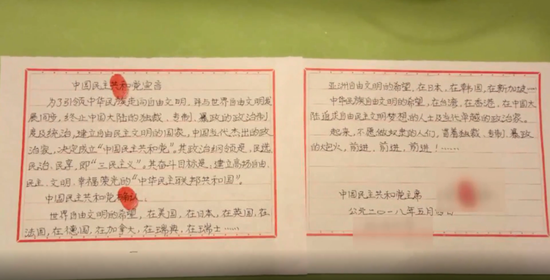 中国民主共和党宣言
为了引领中华民族走向自由文明，并与世界自由文明发
展同步，终止中国大陆的独裁、专制、暴政的政治制
度及统治，建立自由民主文明的国家，中国当代杰出的政治
家，决定成立“中国民主共和党”。其政治纲领是，民有
民治、民享，即“三民主义”。其奋斗目标是，建立高扬自由、
民主、文明、幸福荣光的“中华民主联邦共和国”。
中国民主共和党
世界自由文明的希望，在美国，在日本，在英国，在
法国，在德国，在加拿大，在瑞典，在瑞士……
亚洲自由文明的希望，在日本，在韩国，在新加坡…
中华民族自由文明的希望，在台湾，在香港，在中国大
陆追求自由民主文明梦想的人士及当代卓越的政治家。
起来，不愿做奴隶的人们，冒着独裁、专制、暴政
的炮火，前进，前进，前进！……
中国民主共和党主席
公元二〇一八年五月